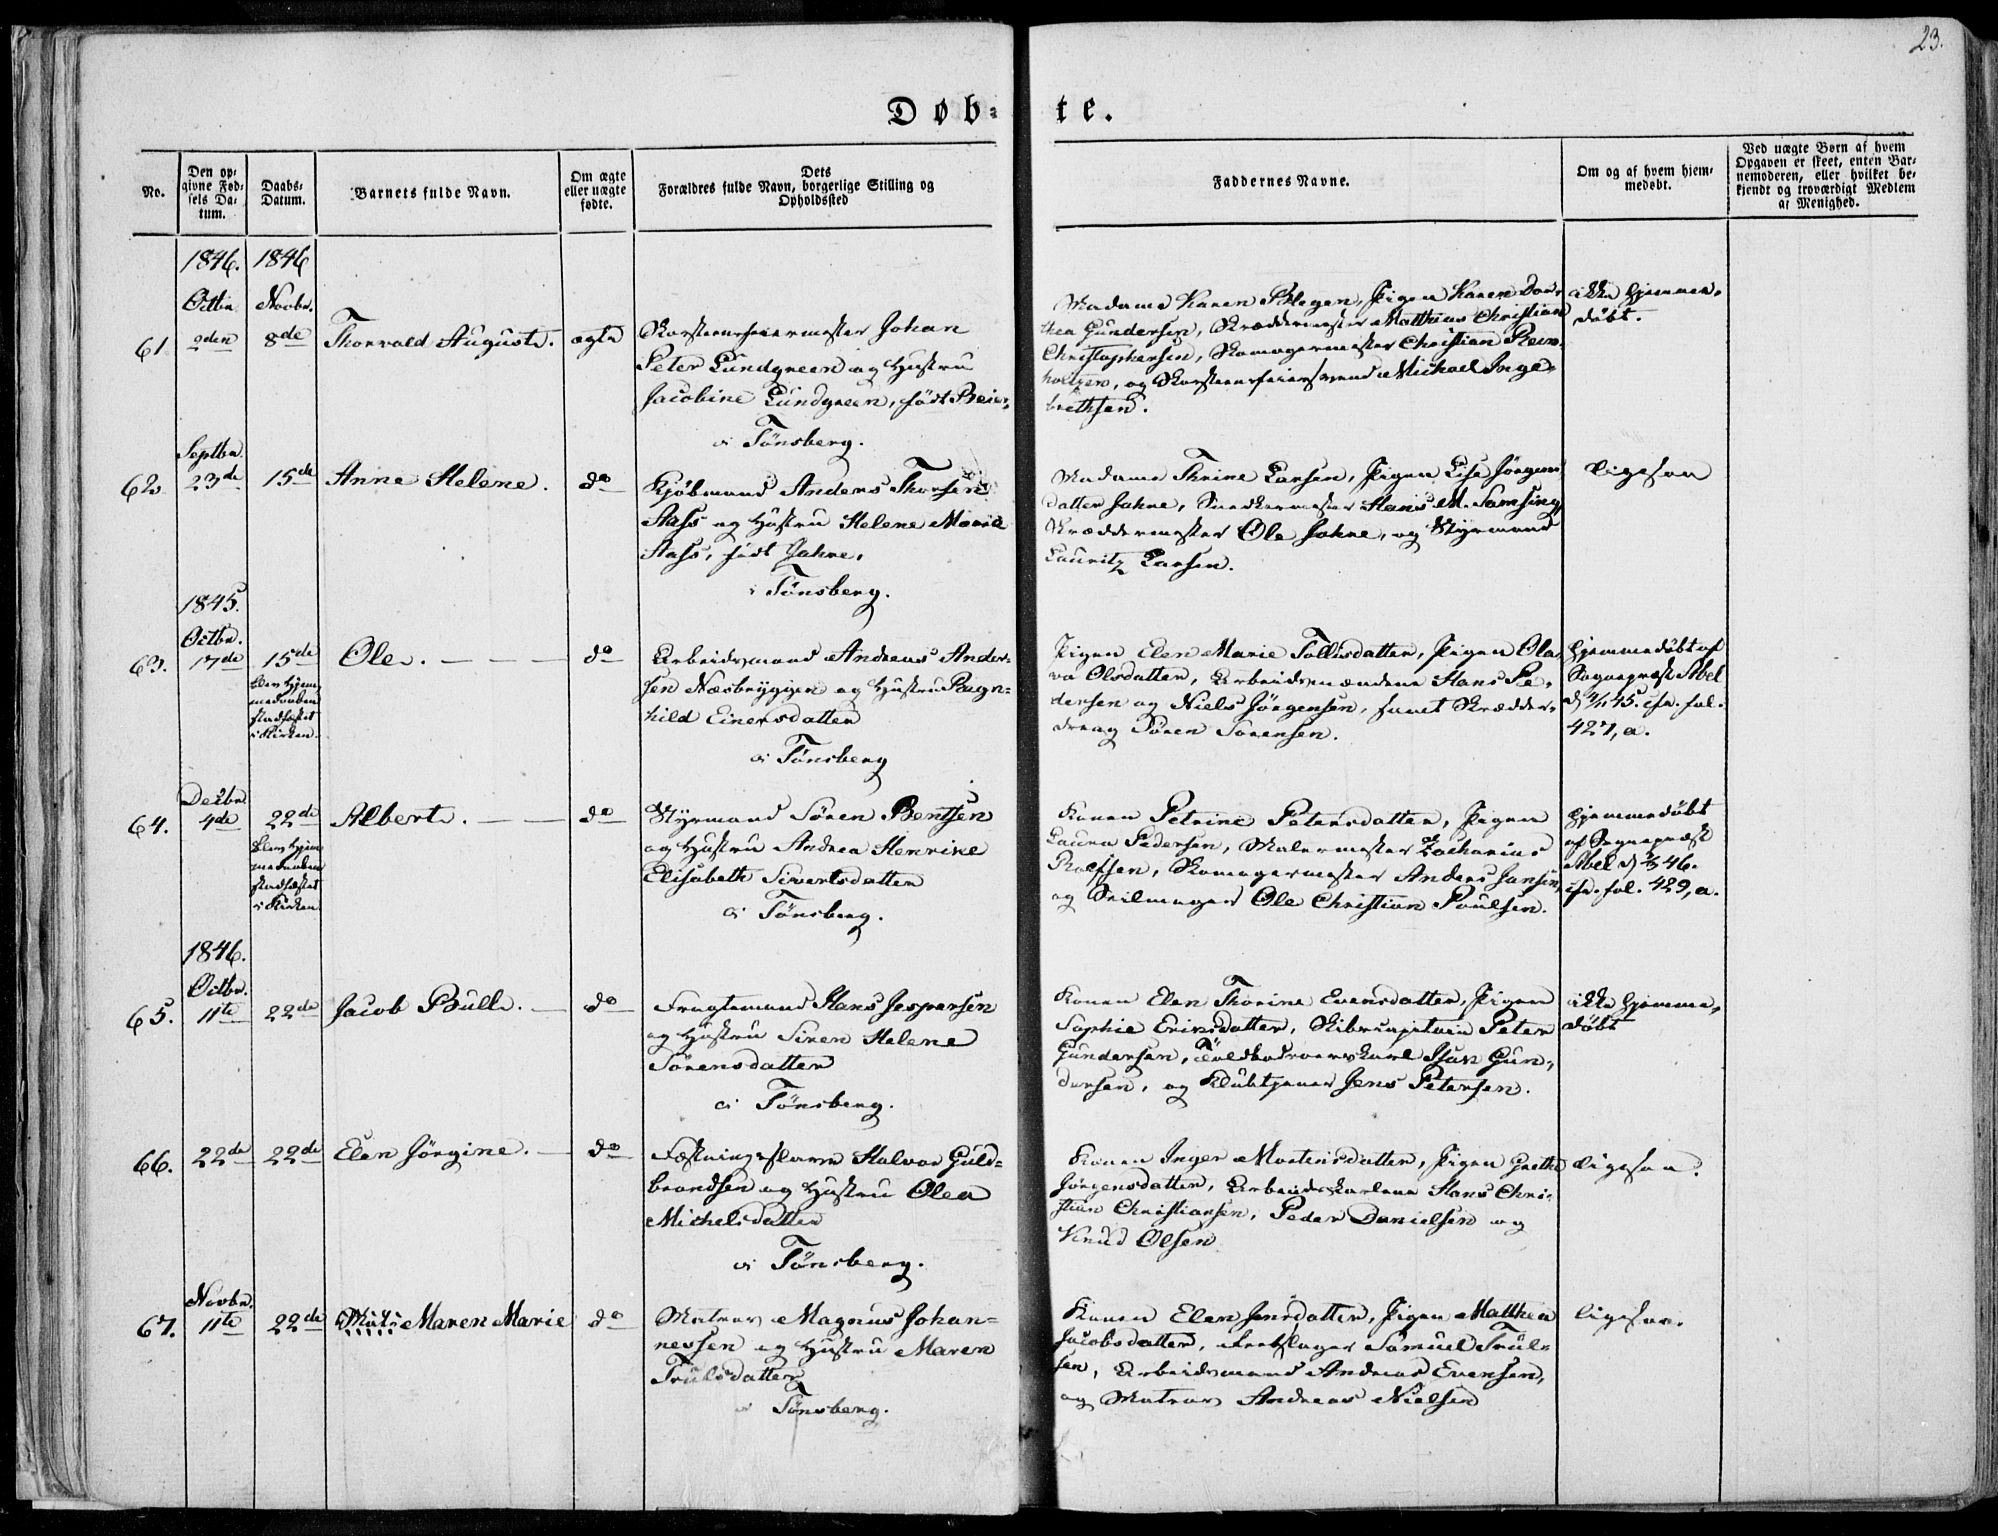 23.
Døb-
te.
No.
Den op-
givne Fød-
sels Da-
tum.
Daabs-
Datum.
Barnets fulde Navn.
Om ægte
eller uægte
fødte.
Dets
Forældres fulde Navn, borgerlige Stilling og
Opholdssted
Faddernes Navne.
Om og af hvem hjem-
medøbt.
Ved uægte Børn af hvem
Opgaven er skeet, enten Bar-
nemoderen, eller hvilket be-
kjendt og troværdigt Medlem
af Menighed.
1846. 1846
Octbr. Novbr.
61 2den 8de Thorvald August. ægte
Skorsteensfeiermester Johan
Peter Lundgreen og Hustru
Jacobine Lundgreen, født Beier,
i Tönsberg.
Madame Karen Pleger, Pigen Karen Dor-
thea Gundersen, Skræddermester Matthias Christian
Christophersen, Skomagermester Christian Rein-
holtzen, og Skorsteensfeiersvend Michael Inge-
brethsen.
ikke hjemme-
døbt.
Septbr.
62 23de 15de Anne Helene. do
Kjöbmand Anders Thorsen
Aass og Hustru Helene Marie
Aass, født Jahre,
i Tönsberg.
Madame Thrine Larsen, Pigen Lise Jörgens
datter Jahre, Snedkermester Hans M. Samsing,
Skræddermester Ole Jahre, og Styrmand
Lauritz Larsen.
ligesaa
1845.
Octbr.
63. 17de 15de Ole. do
blev Hjem-
medaaben
stadfæstet
i Kirken.
Arbeidsmand Andreas Ander-
sen Næsbryggen og Hustru Ragn-
hild Einersdatter
i Tönsberg
Pigen Elen Marie Tollisdatter, Pigen Ola-
va Olsdatter, Arbeidsmændene Hans Pe-
dersen og Niels Jörgensen, samt Skrædder-
dreng Sören Sorensen.
hjemmedøbt af
Sognepræst Abel
45. cfr. fol.
427, a.
Decbr.
64. 4de 22de Albert. do
blev Hjem-
medaaben
stadfæstet
i Kirken
Styrmand Sören Bentsen
og Hustru Andrea Henrike
Elisabeth Sivertsdatter
i Tönsberg.
Konen Petrine Petersdatter, Pigen
Laura Pedersen, Malermester Zacharias
Rolfsen, Skomagermester Anders Jansen,
og Seilmager Ole Christian Poulsen.
hjemmedøbt
af Sognepræst
Abel 46.
cfr. fol. 429, a.
1846.
Octbr.
65. 11te 22de Jacob Bull. do
Fragtemand Hans Jespersen
og Hustru Siren Helene
Sörensdatter
i Tönsberg.
Konen Elen Thorine Evensdatter, Pigen
Sophie Ericsdatter, Skibscapitain Peter
Gundersen, Toldbodroerskarl Isak Gun-
dersen, og Klubtjener Jens Petersen.
ikke hjemme-
døbt
66. 22de 22de Elen Jörgine. do
Fæstningsslave Halvor Guld-
brandsen og Hustru Olea
Michelsdatter
i Tönsberg.
Konen Inger Mortensdatter, Pigen Grethe
Jörgensdatter, Arbeidskarlene Hans Chri-
stian Christiansen, Peder Danielsen og
Knud Olsen
ligesaa.
Novbr.
67. 11te 22de Maren Marie do
Matros Magnus Johan-
nessen og Hustru Maren
Trulsdatter
i Tönsberg.
Konen Elen Jensdatter, Pigen Matthea
Jacobsdatter, Rebslager Samuel Trul-
sen, Arbeidsmand Andreas Evensen,
og Matros Andreas Nielsen
ligesaa.